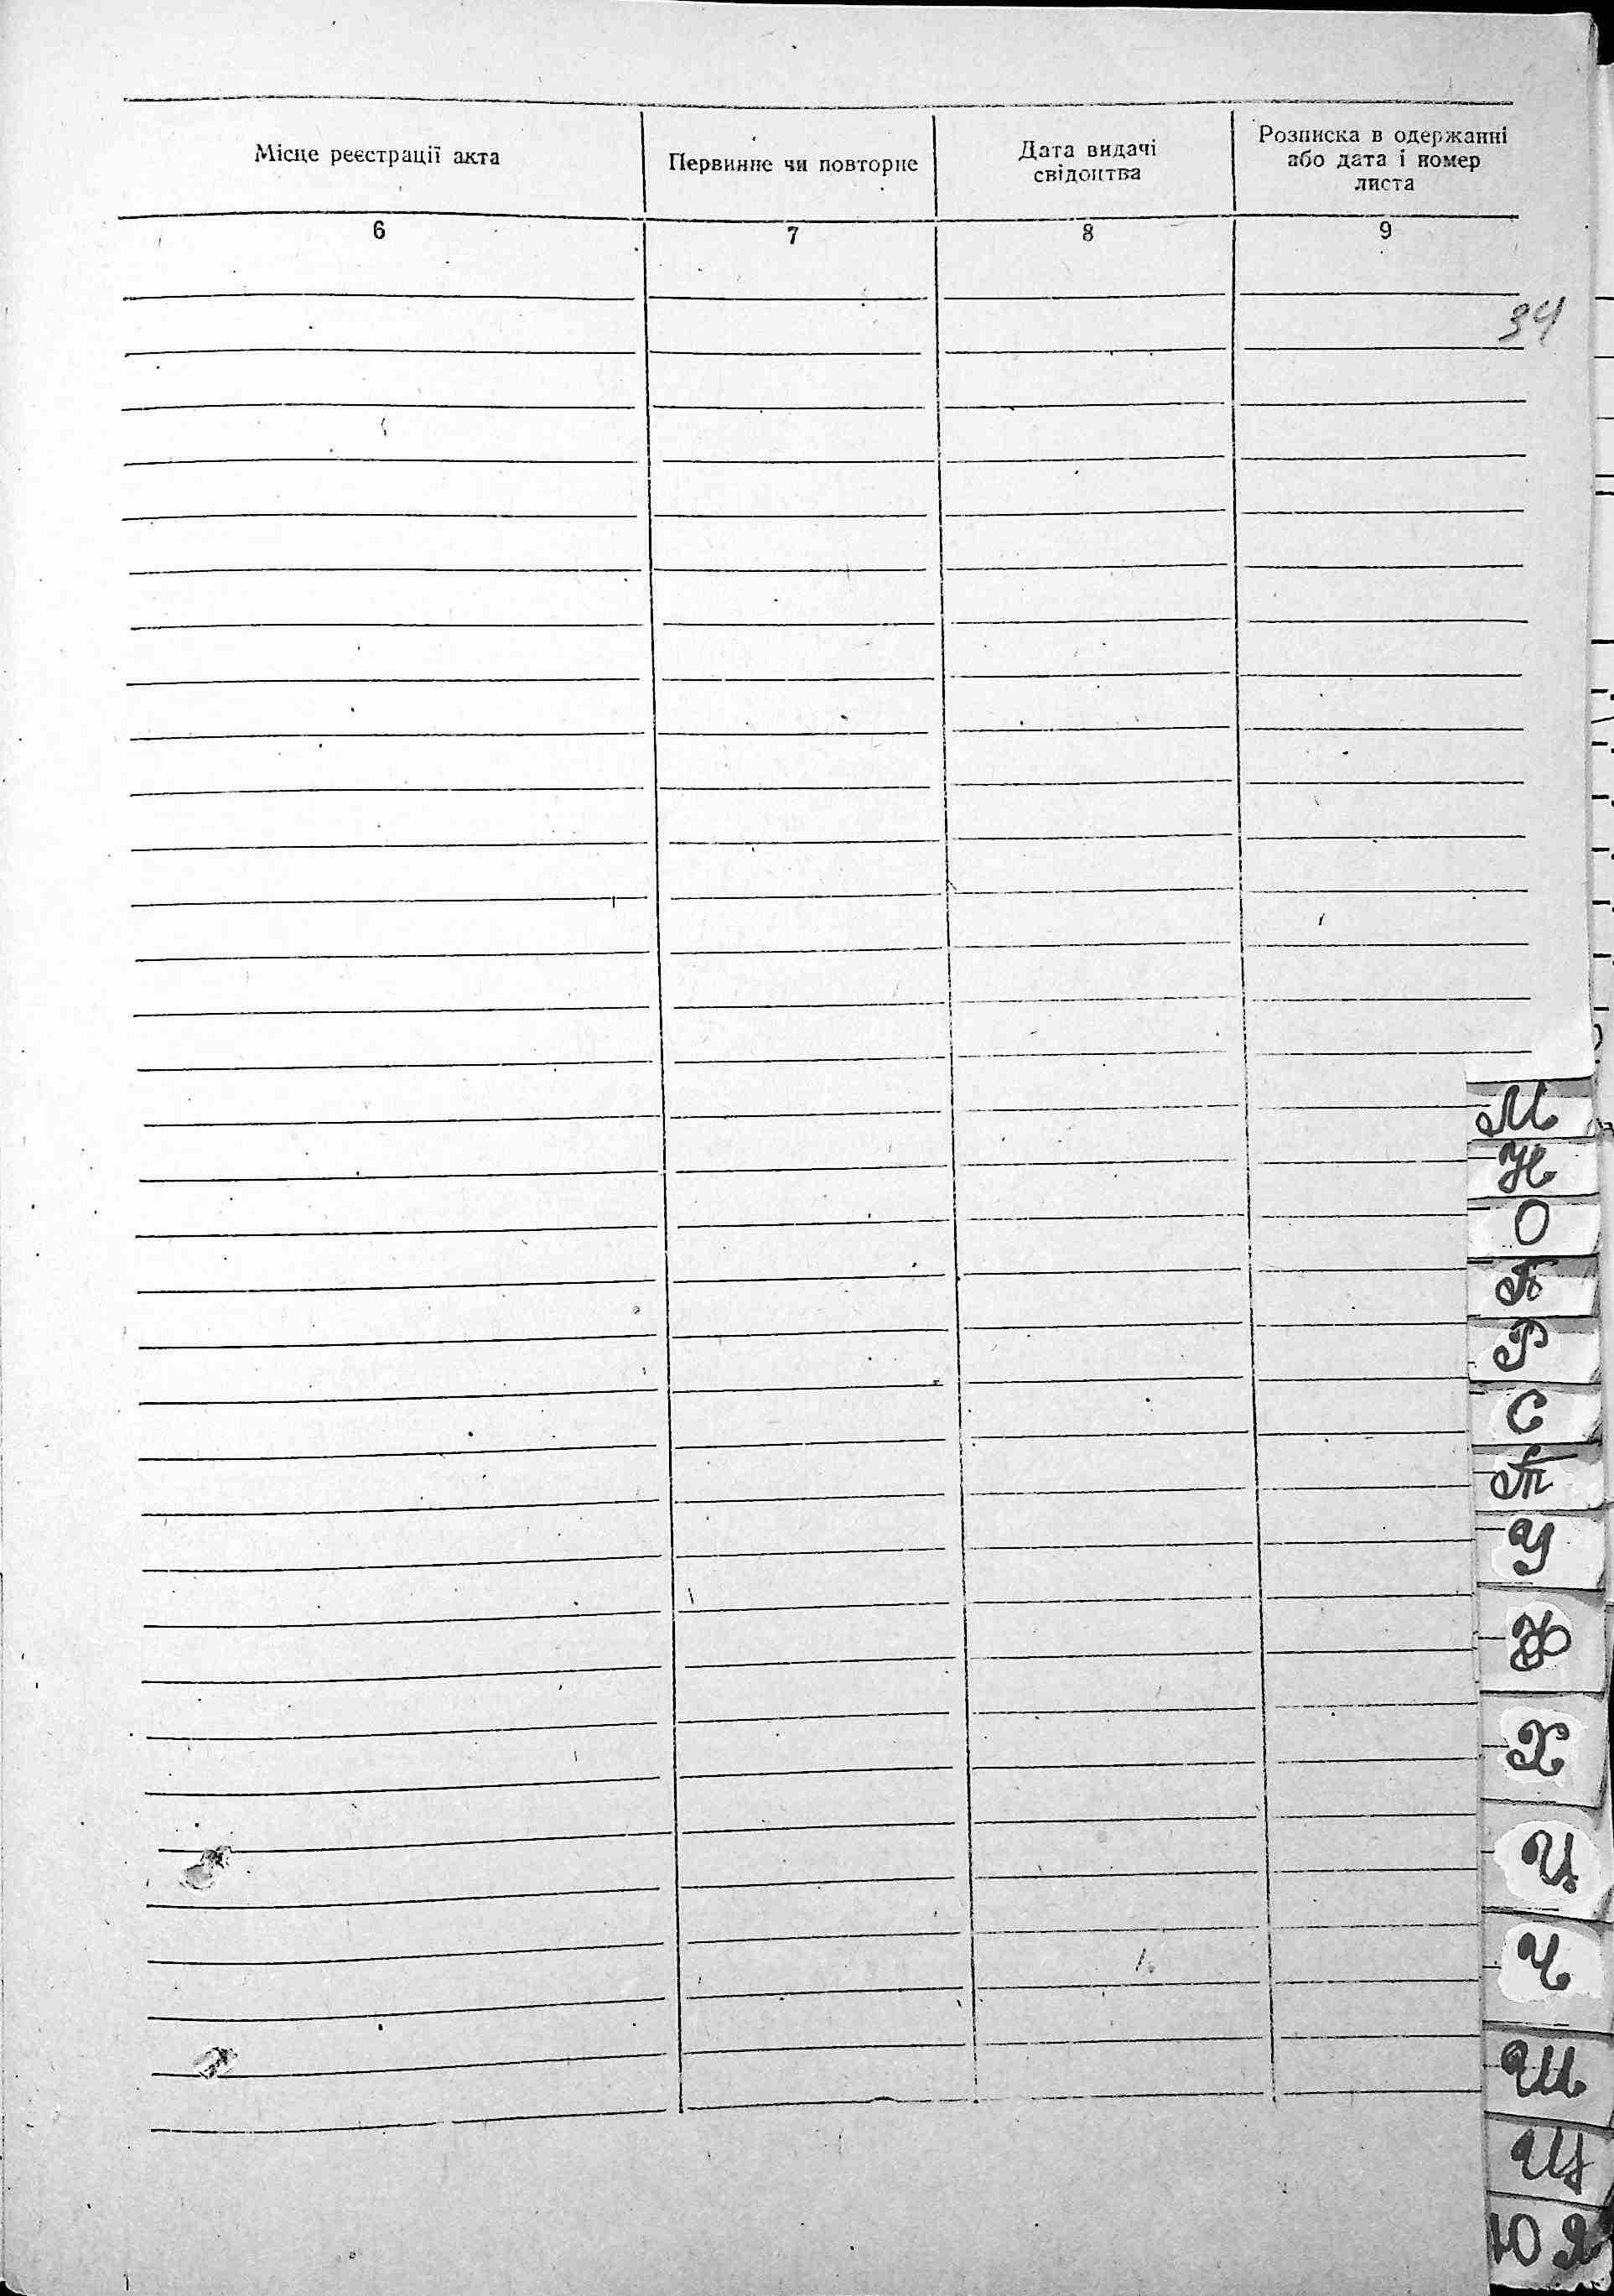 Місце реєстрації акта
Первинне чи повторне
Дата видачі
свідоцтва
Розписка в одержанні
або дата і номер
листа
6
7
8
9
34
М
Н
О
П
Р
С
Т
У
Ф
Х
Ц
Ч
Ш
Щ
Ю Я